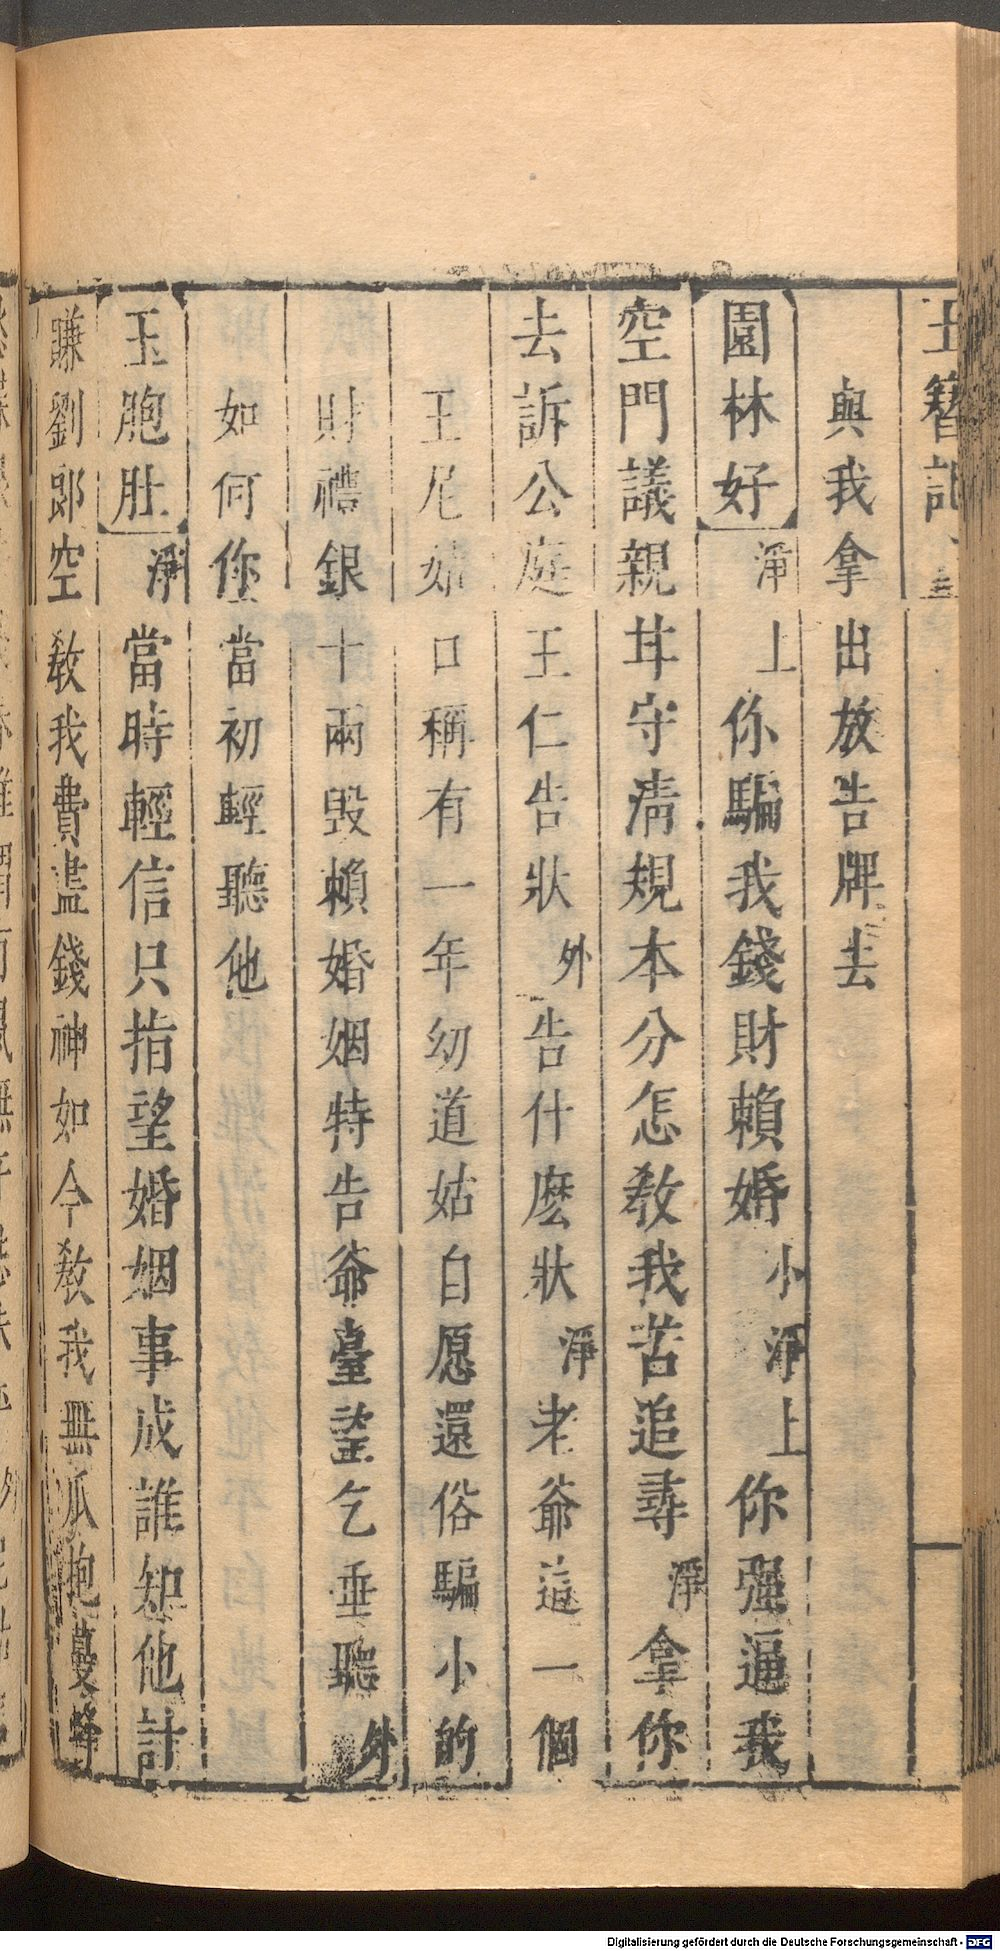 玉簪記
與我拿出放告牌去
園林好 淨上你騙我錢財賴婚小淨上你强逼我
空門議親 守清規本分怎敎我苦追尋淨拿你
去訴公庭 王仁告狀外告什麽狀淨老爺這一個
王尼姑口稱有一年幼道姑自愿還俗騙小的
財禮銀十兩毁賴婚姻特告爺臺望乞垂聽外
如何你當初輕聽他
玉胞肚 淨當時輕信只指望婚姻事成誰知他計
賺劉郎空敎我費盡錢神如今敎我無瓜抱蔓蜂
Digitalisierung gefördert durch die Deutsche Forschungsgemeinschaft - DFG